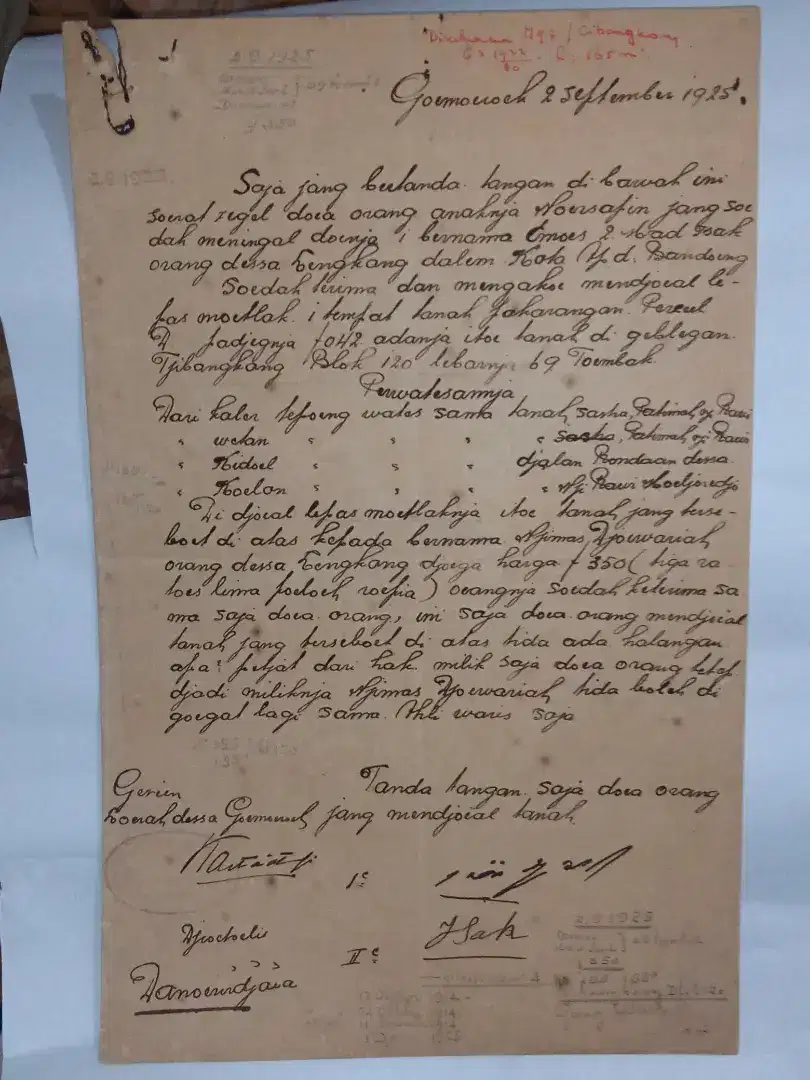 Goemoeroeh 2 September 1925.
Saja jang bertanda tangan di bawah ini
soerat zegel doea orang anaknja Noersapin jang soe
dah meningal doenja 1 bernama Emoes 2. Mad Isak
orang dessa Lengkang dalem Kota Afd. Bandoeng
Soedah terima dan mengakoe mendjoeal le-
pas moetlak 1 tempat tanah pakarangan. Perceel
D padjegnja f 042 adanja itoe tanah di geblegan.
Tjibangkang Blok 120 lebarnja 69 Toembak.
Perwatesannja
Dari kaler tepoeng wates sama tanah, Sasha, Patimah, Nji Rawi
" wetan " " " " Sasha, Patimah, Nji Rawi
" Kidoel " " djalan Rondaan dessa
" Koelon " " " " Nji Rawi Moeljoredjo
Di djoeal lepas moetlaknja itoe tanah jang terse-
boet di atas kepada bernama Njimas Djoewariah
orang dessa Lengkang djoega harga f 350 ( tiga ra-
toes lima poeloeh roepia ) oeangnja soedah keterima sa
ma saja doea orang, ini saja doea orang mendjoeal
tanah jang terseboet di atas tida ada halangan
apa2 petjat dari hak milik saja doea orang tetap
djadi miliknja Njimas Djoewariah tida boleh di
goegat lagi sama Ahli waris saja
Gezien
Loerah dessa Goemoeroeh
Tanda tangan saja doea orang
jang mendjoeal tanah
Ie
Djoeroetoelis
IIe
ISak
Danoewidjaja
2.9.1925